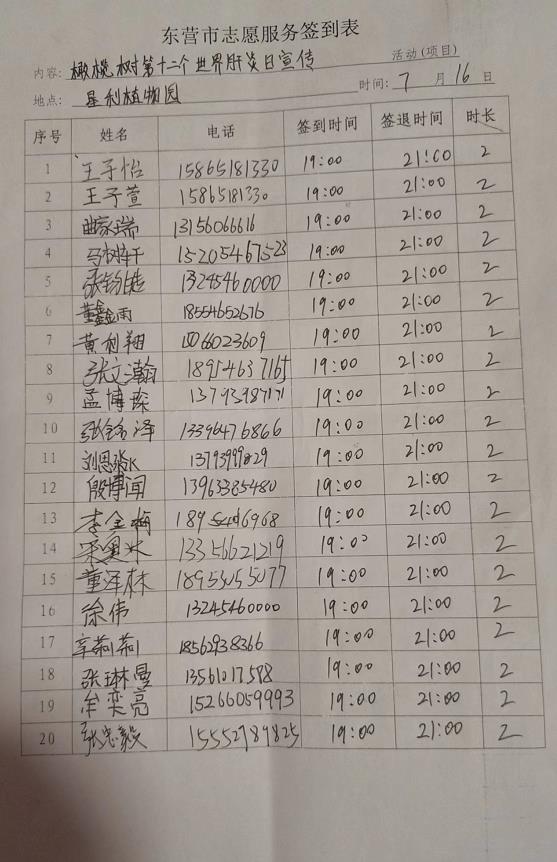 东营市志愿服务签到表
内容: 橄榄树第十二个世界肝炎日宣传 活动(项目)
地点: 垦利植物园 时间: 7 月 16 日
序号 姓名 电话 签到时间 签退时间 时长
1 王子怡 15865181330 19:00 21:00 2
2 王予萱 15865181330 19:00 21:00 2
3 曲家瑞 13156066616 19:00 21:00 2
4 15205467523 19:00 21:00 2
5 13245460000 19:00 21:00 2
6 董鑫雨 18554652676 19:00 21:00 2
7 黄利翔 19:00 21:00 2
8 张文瀚 18954637165 19:00 21:00 2
9 孟博琛 13793987171 19:00 21:00 2
10 张铭泽 13396476866 19:00 21:00 2
11 19:00 21:00 2
12 殷博闻 13963385480 19:00 21:00 2
13 李金梅 19:00 21:00 2
14 13356621219 19:00 21:00 2
15 董泽林 18953055077 19:00 21:00 2
16 徐伟 13245460000 19:00 21:00 2
17 辛莉莉 18562938366 19:00 21:00 2
18 张琳曼 13561017588 19:00 21:00 2
19 牟奕亮 15266059993 19:00 21:00 2
20 张忠毅 15552789825 19:00 21:00 2